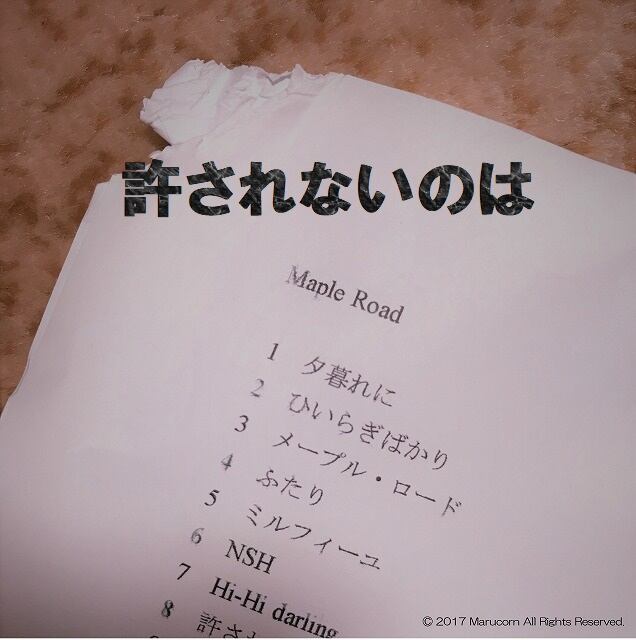 許されないのは
Maple Road
1 夕暮れに
2 ひいらぎばかり
3 メープル・ロード
4 ふたり
5 ミルフィーユ
6 NSH
7 Hi-Hi darling
8 許され
© 2017 Marucorn All Rights Reserved.